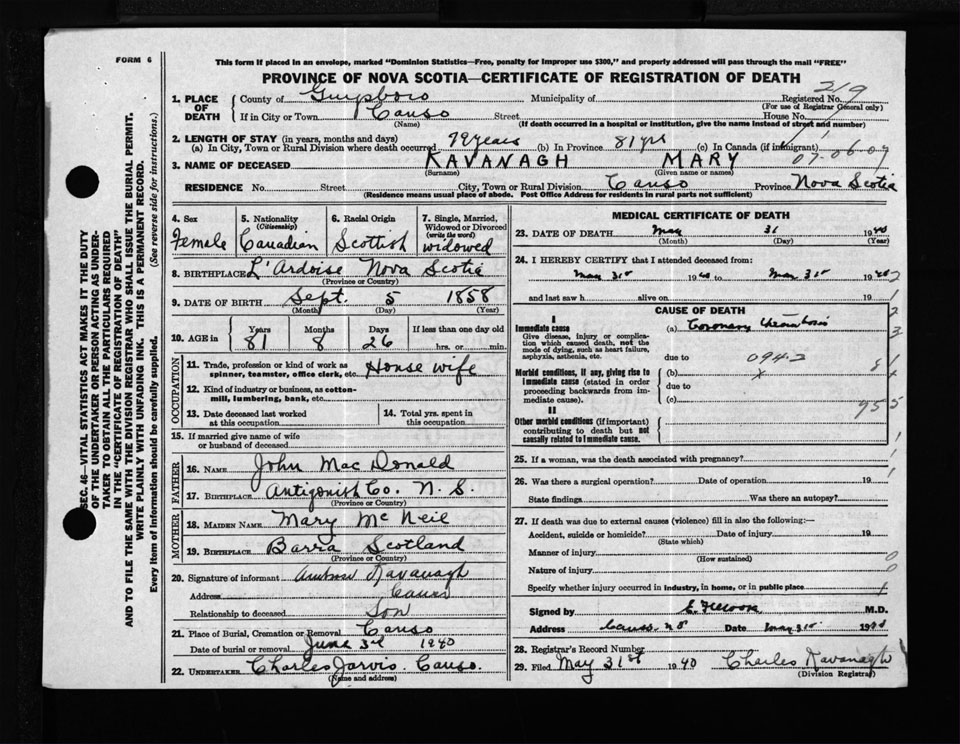 FORM 6
This form if placed in an envelope, marked "Dominion Statistics—Free, penalty for improper use $300," and properly addressed will pass through the mail "FREE"
PROVINCE OF NOVA SCOTIA—CERTIFICATE OF REGISTRATION OF DEATH
219
1. PLACE OF DEATH { County of Guysboro Municipality of Registered No.
(For use of Registrar General only)
If in City or Town Canso Street House No.
(Name) (If death occurred in a hospital or institution, give the name instead of street and number)
2. LENGTH OF STAY (in years, months and days)
(a) In City, Town or Rural Division where death occurred 72 years (b) In Province 81 yrs (c) In Canada (if immigrant)
3. NAME OF DECEASED KAVANAGH MARY 07-06-09
(Surname) (Given name or names)
RESIDENCE No. Street City, Town or Rural Division Canso Province Nova Scotia
(Residence means usual place of abode. Post Office Address for residents in rural parts not sufficient)
4. Sex Female
5. Nationality (Citizenship) Canadian
6. Racial Origin Scottish
7. Single, Married, Widowed or Divorced (write the word) widowed
8. BIRTHPLACE L'Ardoise Nova Scotia
(Province or Country)
9. DATE OF BIRTH Sept. 5 1858
(Month) (Day) (Year)
10. AGE in Years Months Days If less than one day old
81 8 26 hrs. or min.
OCCUPATION
11. Trade, profession or kind of work as spinner, teamster, office clerk, etc. House wife
12. Kind of industry or business, as cotton-mill, lumbering, bank, etc.
13. Date deceased last worked at this occupation
14. Total yrs. spent in this occupation
15. If married give name of wife or husband of deceased
FATHER
16. NAME John MacDonald
17. BIRTHPLACE Antigonish Co. N. S.
(Province or Country)
MOTHER
18. MAIDEN NAME Mary McNeil
19. BIRTHPLACE Barria Scotland
(Province or Country)
20. Signature of informant Ambrose Kavanagh
Address Canso
Relationship to deceased Son
21. Place of Burial, Cremation or Removal Canso
Date of burial or removal June 3rd 1940
22. UNDERTAKER Charles Jarvis. Canso.
(Name and address)
MEDICAL CERTIFICATE OF DEATH
23. DATE OF DEATH May 31 1940
(Month) (Day) (Year)
24. I HEREBY CERTIFY that I attended deceased from:
May 31st 1940 to May 31st 1940
and last saw h alive on 19
CAUSE OF DEATH
I
Immediate cause (a) Coronary thrombosis
Give disease, injury or complication which caused death, not the mode of dying, such as heart failure, asphyxia, asthenia, etc.
due to 094-2
Morbid conditions, if any, giving rise to immediate cause (stated in order proceeding backwards from immediate cause).
(b) x
due to
(c)
II
Other morbid conditions (if important) contributing to death but not causally related to immediate cause.
25. If a woman, was the death associated with pregnancy?
26. Was there a surgical operation? Date of operation 19
State findings Was there an autopsy?
27. If death was due to external causes (violence) fill in also the following:—
Accident, suicide or homicide? Date of injury 19
(State which)
Manner of injury
(How sustained)
Nature of injury
Specify whether injury occurred in industry, in home, or in public place
Signed by M.D.
Address Canso. N S Date May 31st 1940
28. Registrar's Record Number
29. Filed May 31st 1940 Charles Kavanagh
(Division Registrar)
SEC. 46—VITAL STATISTICS ACT MAKES IT THE DUTY
OF THE UNDERTAKER OR PERSON ACTING AS UNDER-
TAKER TO OBTAIN ALL THE PARTICULARS REQUIRED
IN THE "CERTIFICATE OF REGISTRATION OF DEATH"
AND TO FILE THE SAME WITH THE DIVISION REGISTRAR WHO SHALL ISSUE THE BURIAL PERMIT.
WRITE PLAINLY WITH UNFADING INK. THIS IS A PERMANENT RECORD.
Every item of information should be carefully supplied. (See reverse side for instructions.)